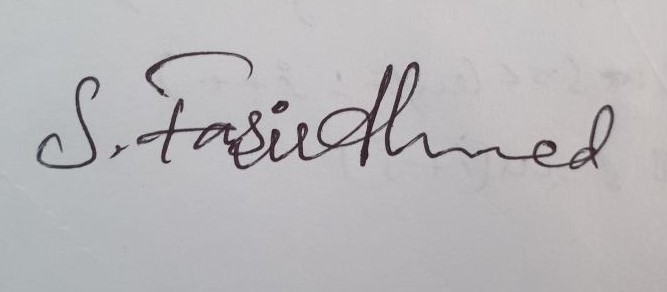 S. Fasiu Ahmed